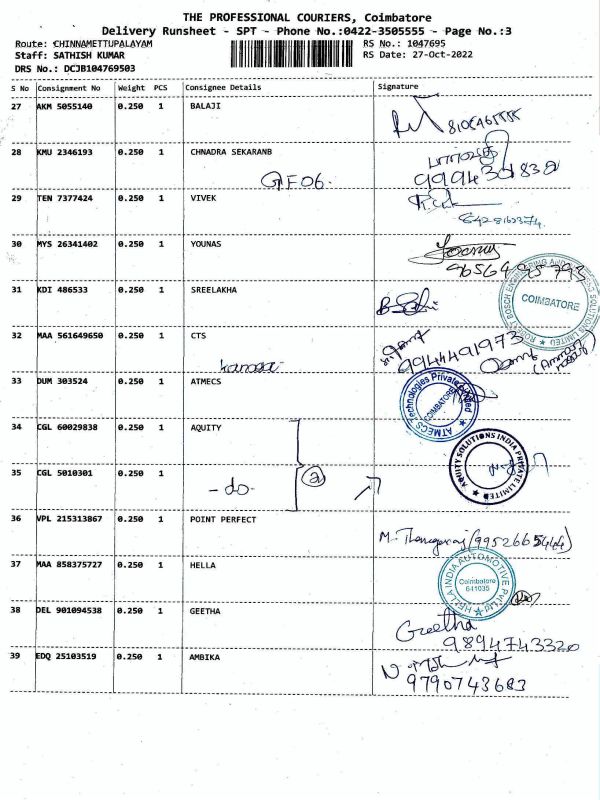 THE PROFESSIONAL COURIERS, Coimbatore
Delivery Runsheet - SPT - Phone No.:0422-3505555 - Page No.:3
Route: CHINNAMETTUPALAYAM RS No.: 1047695
Staff: SATHISH KUMAR RS Date: 27-Oct-2022
DRS No.: DCJB104769503
S No Consignment No Weight PCS Consignee Details Signature
27 AKM 5055140 0.250 1 BALAJI
28 KMU 2346193 0.250 1 CHNADRA SEKARANB
GF06.
29 TEN 7377424 0.250 1 VIVEK
30 MYS 26341402 0.250 1 YOUNAS
31 KDI 486533 0.250 1 SREELAKHA
COIMBATORE
32 MAA 561649650 0.250 1 CTS
9944491973
33 DUM 303524 0.250 1 ATMECS
ATMECS Technologies Private Limited
COIMBATORE
34 CGL 60029838 0.250 1 AQUITY
AQUITY SOLUTIONS INDIA PRIVATE LIMITED
35 CGL 5010301 0.250 1
-do-
36 VPL 215313867 0.250 1 POINT PERFECT
37 MAA 858375727 0.250 1 HELLA
HELLA INDIA AUTOMOTIVE Pvt Ltd
Coimbatore
641035
38 DEL 901094538 0.250 1 GEETHA
Geetha
9894743320
39 EDQ 25103519 0.250 1 AMBIKA
9790743683